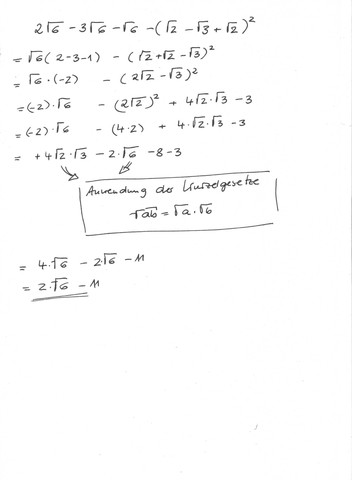 2√6 - 3√6 - √6 - (√2 - √3 + √2)²
= √6 (2-3-1) - (√2+√2 - √3)²
= √6 · (-2) - (2√2 - √3)²
= (-2) · √6 - (2√2)² + 4√2·√3 - 3
= (-2) · √6 - (4·2) + 4·√2·√3 - 3
= + 4√2·√3 - 2·√6 - 8 - 3
Anwendung der Wurzelgesetze
√ab = √a · √b
= 4·√6 - 2√6 - 11
= 2·√6 - 11